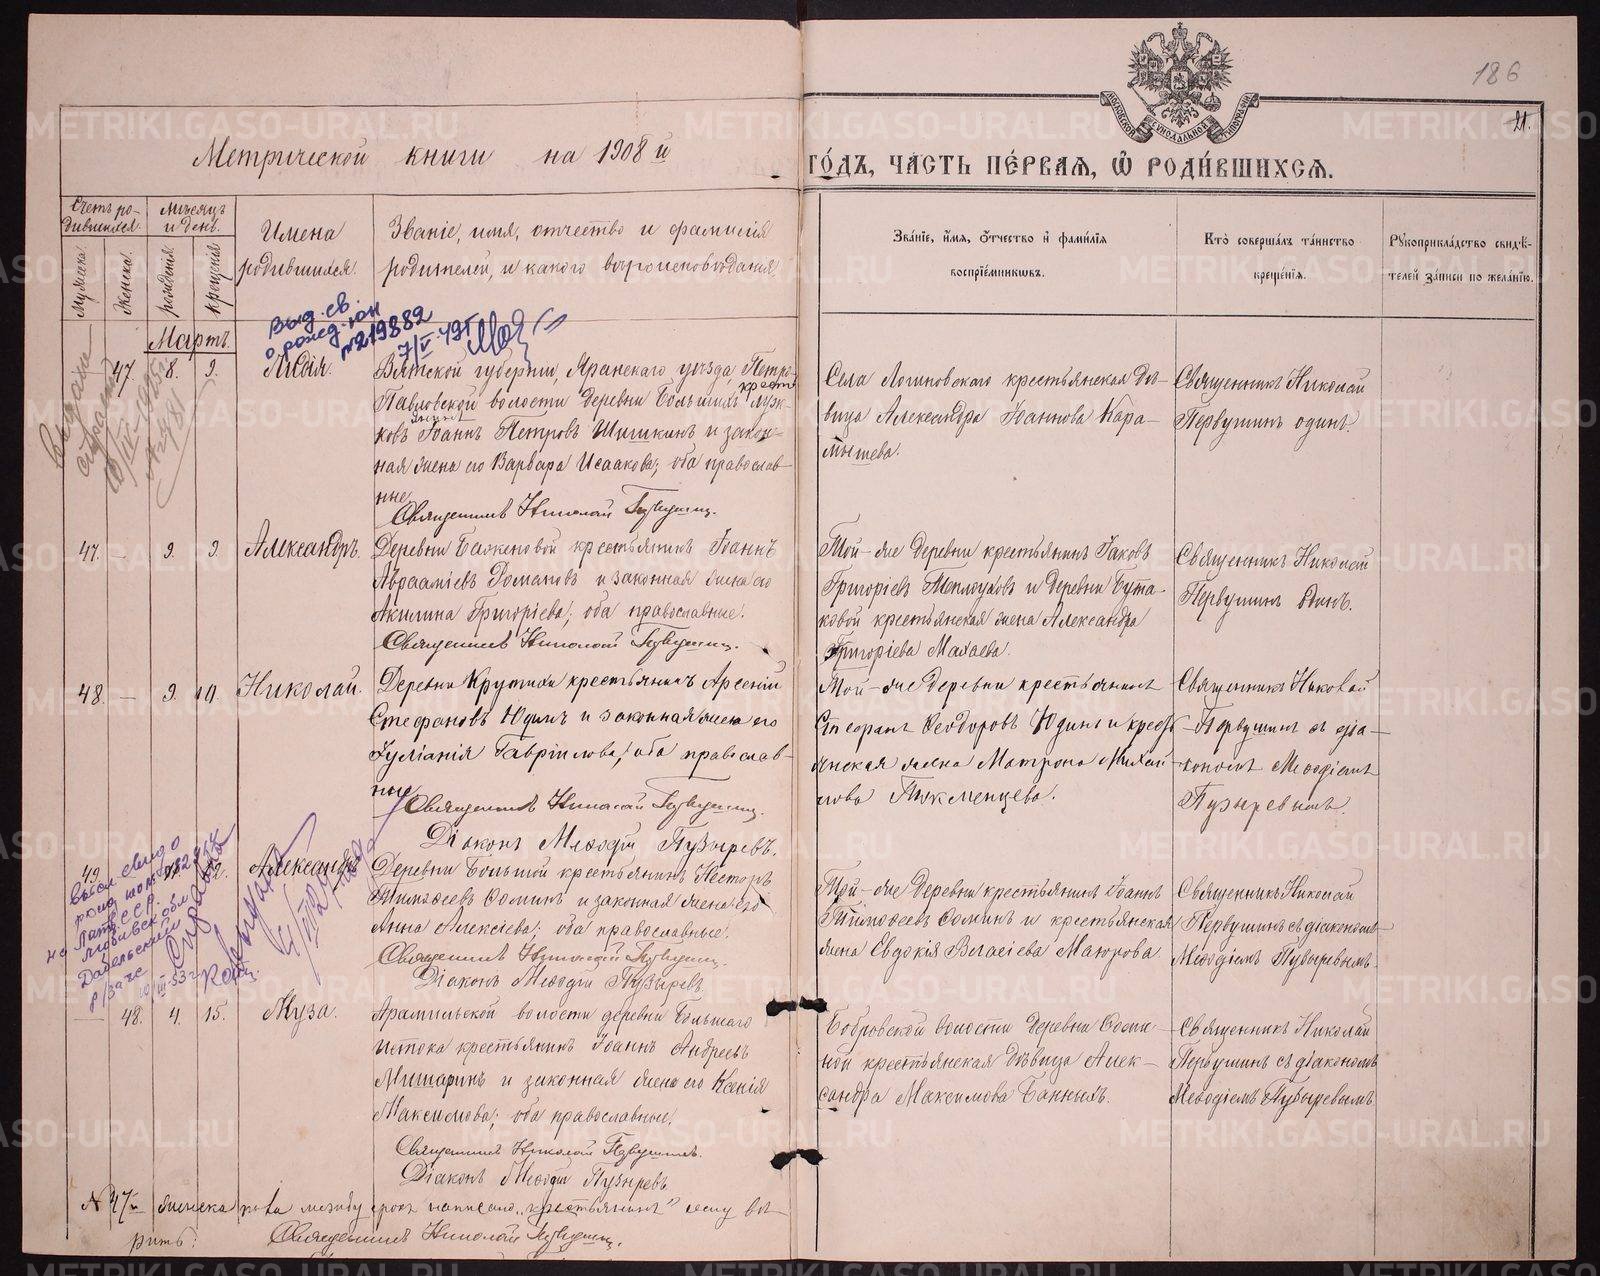 186
21.
МОСКОВСКОЙ СѴНОДАЛЬНОЙ ТИПОГРАФІИ
Метрической книги на 1908 й
ГО́ДЪ, ЧА́СТЬ ПЕ́РВАЯ, Ѽ РОДИ́ВШИХСЯ.
Счетъ ро-
дившихся.
Мѣсяцъ
и день.
Имена
родившихся.
Званіе, имя, отчество и фамилія
родителей, и какого вѣроисповѣданія.
Зва́ніе, и́мя, о́тчество и фами́лія
воспріе́мниковъ.
Кто̀ соверша́лъ та́инство
креще́нія.
Рꙋкоприкла́дство свидѣ́-
телей за́писи по жела́нію.
мужеска
женска
рожденія
крещенія
Мартъ.
Выд. св.
о рожд.
№219882
7/V-49г
47. 8. 9.
Лидія.
Вятской губерніи, Яранскаго уѣзда, Петро-
Павловской волости деревни Большихъ
крестьянинъ
ковъ Іоаннъ Петровъ Шишкинъ и закон-
ная жена его Варвара Исаакова; оба православ-
ные.
Священникъ Николай Первушинъ.
Села Логиновскаго крестьянская дѣ-
вица Александра Іоаннова Кара-
мышева.
Священникъ Николай
Первушинъ одинъ.
47. — 9. 9.
Александръ.
Деревни Баженовой крестьянинъ Іоаннъ
Авраамiевъ Романовъ и законная жена его
Акилина Григоріева; оба православные.
Священникъ Николай Первушинъ.
Той-же деревни крестьянинъ Іаковъ
Григоріевъ Теплоуховъ и деревни Бута-
ковой крестьянская жена Александра
Григоріева Махаева.
Священникъ Николай
Первушинъ одинъ.
48. — 9. 10.
Николай.
Деревни Крутихи крестьянинъ Арсеній
Стефановъ Юдинъ и законная жена его
Іуліанія Гавріилова; оба православ-
ные.
Священникъ Николай Первушинъ.
Діаконъ Меѳодій Пузыревъ.
Той-же деревни крестьянинъ
Стефанъ Ѳеодоровъ Юдинъ и кресть-
янская жена Матрона Михай-
лова Тукменцева.
Священникъ Николай
Первушинъ съ діа-
кономъ Меѳодіемъ
Пузыревымъ.
49.
Александръ
Деревни Большой крестьянинъ Несторъ
Тимоѳеевъ Ѳоминъ и законная жена его
Анна Алексіева; оба православные.
Священникъ Николай Первушинъ.
Діаконъ Меѳодій Пузыревъ.
Той-же деревни крестьянинъ Іоаннъ
Тимоѳеевъ Ѳоминъ и крестьянская
жена Евдокія Власіева Маюрова.
Священникъ Николай
Первушинъ съ діакономъ
Меѳодіемъ Пузыревымъ.
— 48. 4. 15.
Муза.
Арамильской волости деревни Большаго
Истока крестьянинъ Іоаннъ Андреевъ
Мишаринъ и законная жена его Ксенія
Максимова; оба православные.
Священникъ Николай Первушинъ.
Діаконъ Меѳодій Пузыревъ
Бобровской волости деревни Ѳоми-
ной крестьянская дѣвица Алек-
сандра Максимова Банныхъ.
Священникъ Николай
Первушинъ съ діакономъ
Меѳодіемъ Пузыревымъ.
№ 47й женска пола между строкъ написано „крестьянинъ" сему вѣ-
рить.
Священникъ Николай Первушинъ.
METRIKI.GASO-URAL.RU